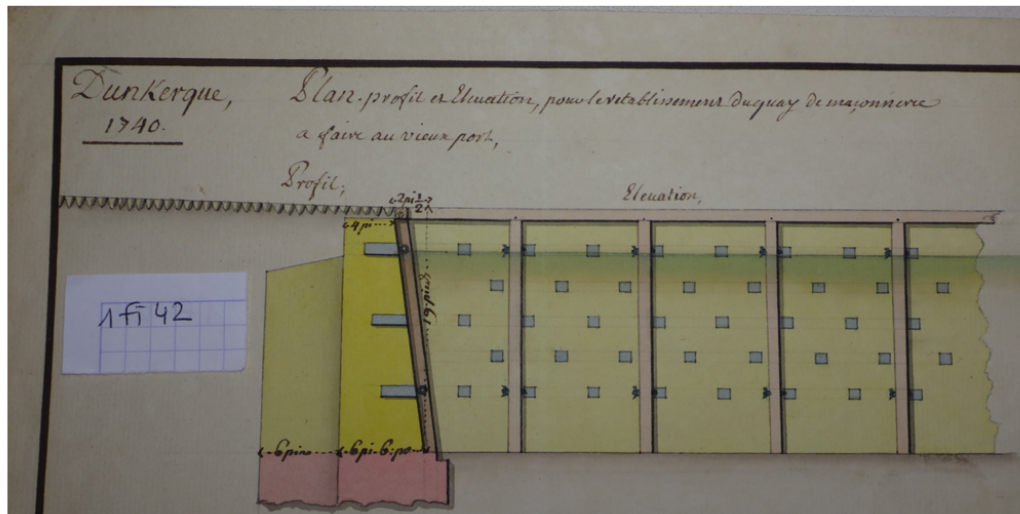 Dunkerque,
1740.
Plan, profil et Eleuation, pour le retablissement du quay de maçonnerie
a faire au vieux port,
Profil,
Eleuation,
2 pi 1/2
4 pi
19 pieds
1 Fi 42
6 pieds
6 pi. 6. po